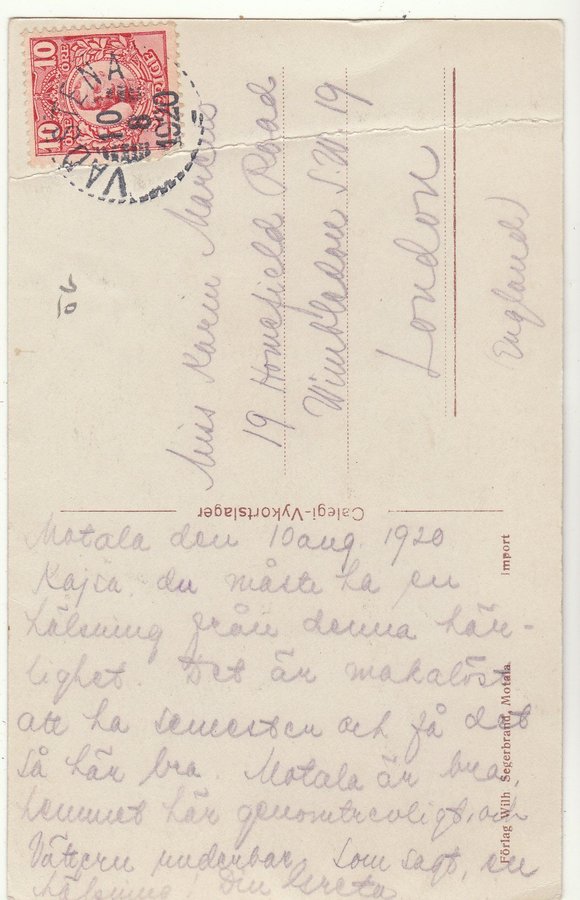 10 10
ÖRE ÖRE
SVERIGE
VADSTENA
10 8
1920
Miss Karin
19 Homefield Road
Wimbledon S.W 19
London
England
Calegi-Vykortslager
Motala den 10 aug. 1920
Kajsa, du måste ha en
hälsning från denna här-
lighet. Det är makalöst
att ha semester och få det
så här bra. Motala är bra,
hemmet här genomtrevligt, och
Vättern underbar. Som sagt, en
hälsning. Din Greta
Förlag Wilh Segerbrand, Motala. Import